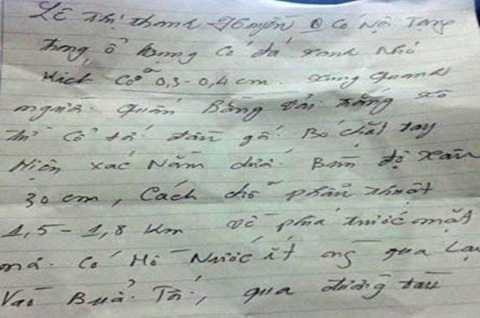 Lê Thị thanh Huyền Có Nội Tạng
trong ổ bụng Có đá xanh Nhỏ
Kích Cỡ 0,3-0,4 cm. xung quanh
người. Quấn Bằng vải trắng xô
thi Có đá đến gối Bó chặt tay
Hiện xác Nằm dưới Bùn độ sâu
30 cm, Cách chỗ phẩu thuật
1,5 - 1,8 Km về phía trước mặt
mả. Có Hồ Nước ít ng qua Lại
Vào Buổi Tối, qua đường tàu